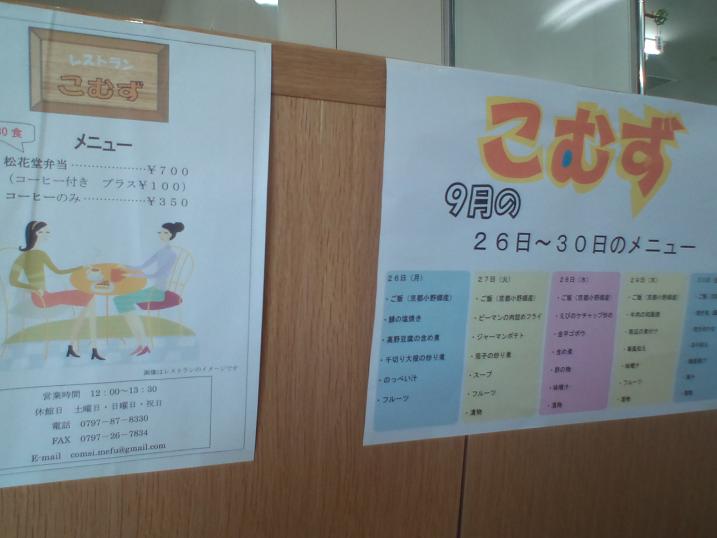 レストラン
こむず
30食
メニュー
松花堂弁当 ………………￥７００
（コーヒー付き プラス￥１００）
コーヒーのみ ……………￥３５０
画像はレストランのイメージです
営業時間 12：00～13：30
休館日 土曜日・日曜日・祝日
電話 0797-87-8330
FAX 0797-26-7834
E-mail comsi.mefu@gmail.com
こむず
9月の
２６日～３０日のメニュー
２６日（月）
・ご飯（京都小野郷産）
・鯖の塩焼き
・高野豆腐の含め煮
・千切り大根の炒り煮
・のっぺい汁
・フルーツ
２７日（火）
・ご飯（京都小野郷産）
・ピーマンの肉詰めフライ
・ジャーマンポテト
・茄子の炒り煮
・スープ
・フルーツ
・漬物
２８日（水）
・ご飯（京都小野郷産）
・えびのケチャップ炒め
・金平ゴボウ
・含め煮
・酢の物
・味噌汁
・漬物
２９日（木）
・ご飯（京都小野郷産）
・味噌汁
・フルーツ
・漬物